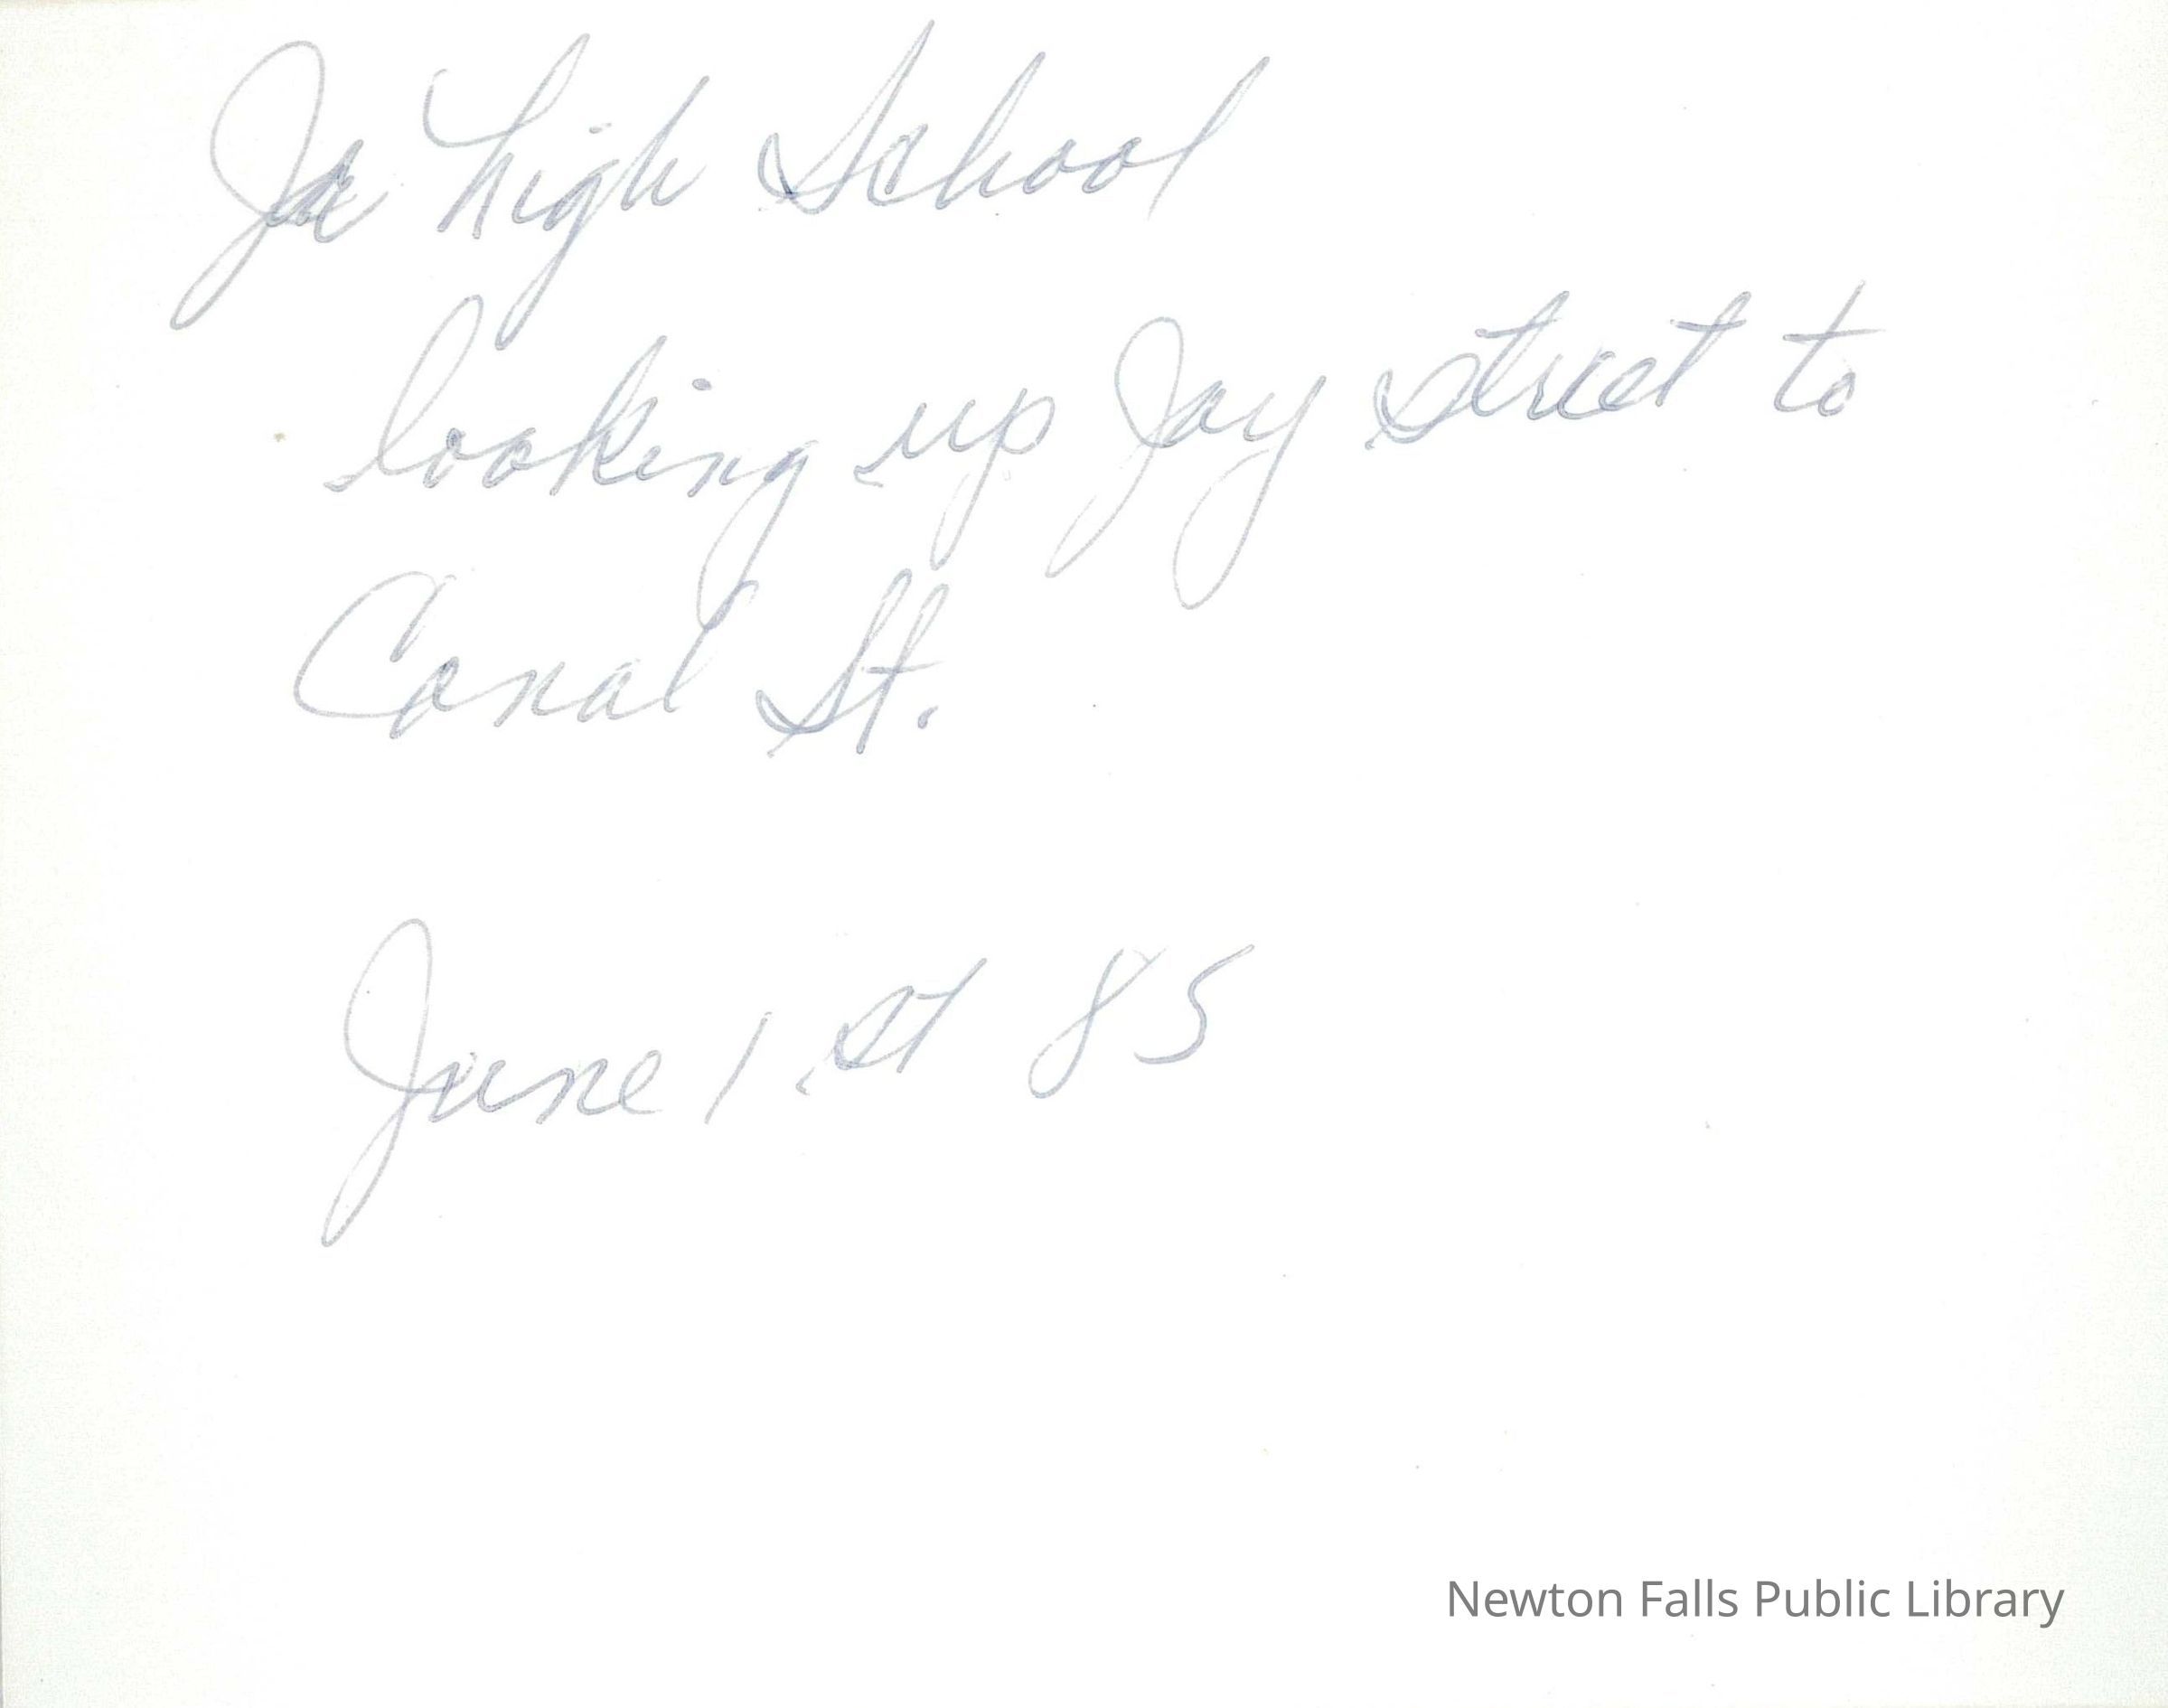 Jr high School
looking up Jay Street to
Canal St.
June 1 st 85
Newton Falls Public Library